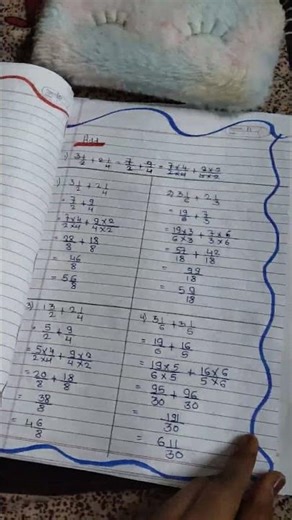 H.W
1) 3 1/2 + 2 1/4 = 7/2 + 9/4 = 7×4/2×4 + 9×2/4×2
1) 3 1/2 + 2 1/4
= 7/2 + 9/4
= 7×4/2×4 + 9×2/4×2
= 28/8 + 18/8
= 46/8
= 5 6/8
2) 3 1/6 + 2 1/3
= 19/6 + 7/3
= 19×3/6×3 + 7×6/3×6
= 57/18 + 42/18
= 99/18
= 5 9/18
= 5/2 + 9/4
= 5×4/2×4 + 9×2/4×2
= 20/8 + 18/8
= 38/8
= 4 6/8
4) 3 1/6 + 3 1/5
= 19/6 + 16/5
= 19×5/6×5 + 16×6/5×6
= 95/30 + 96/30
= 191/30
= 6 11/30